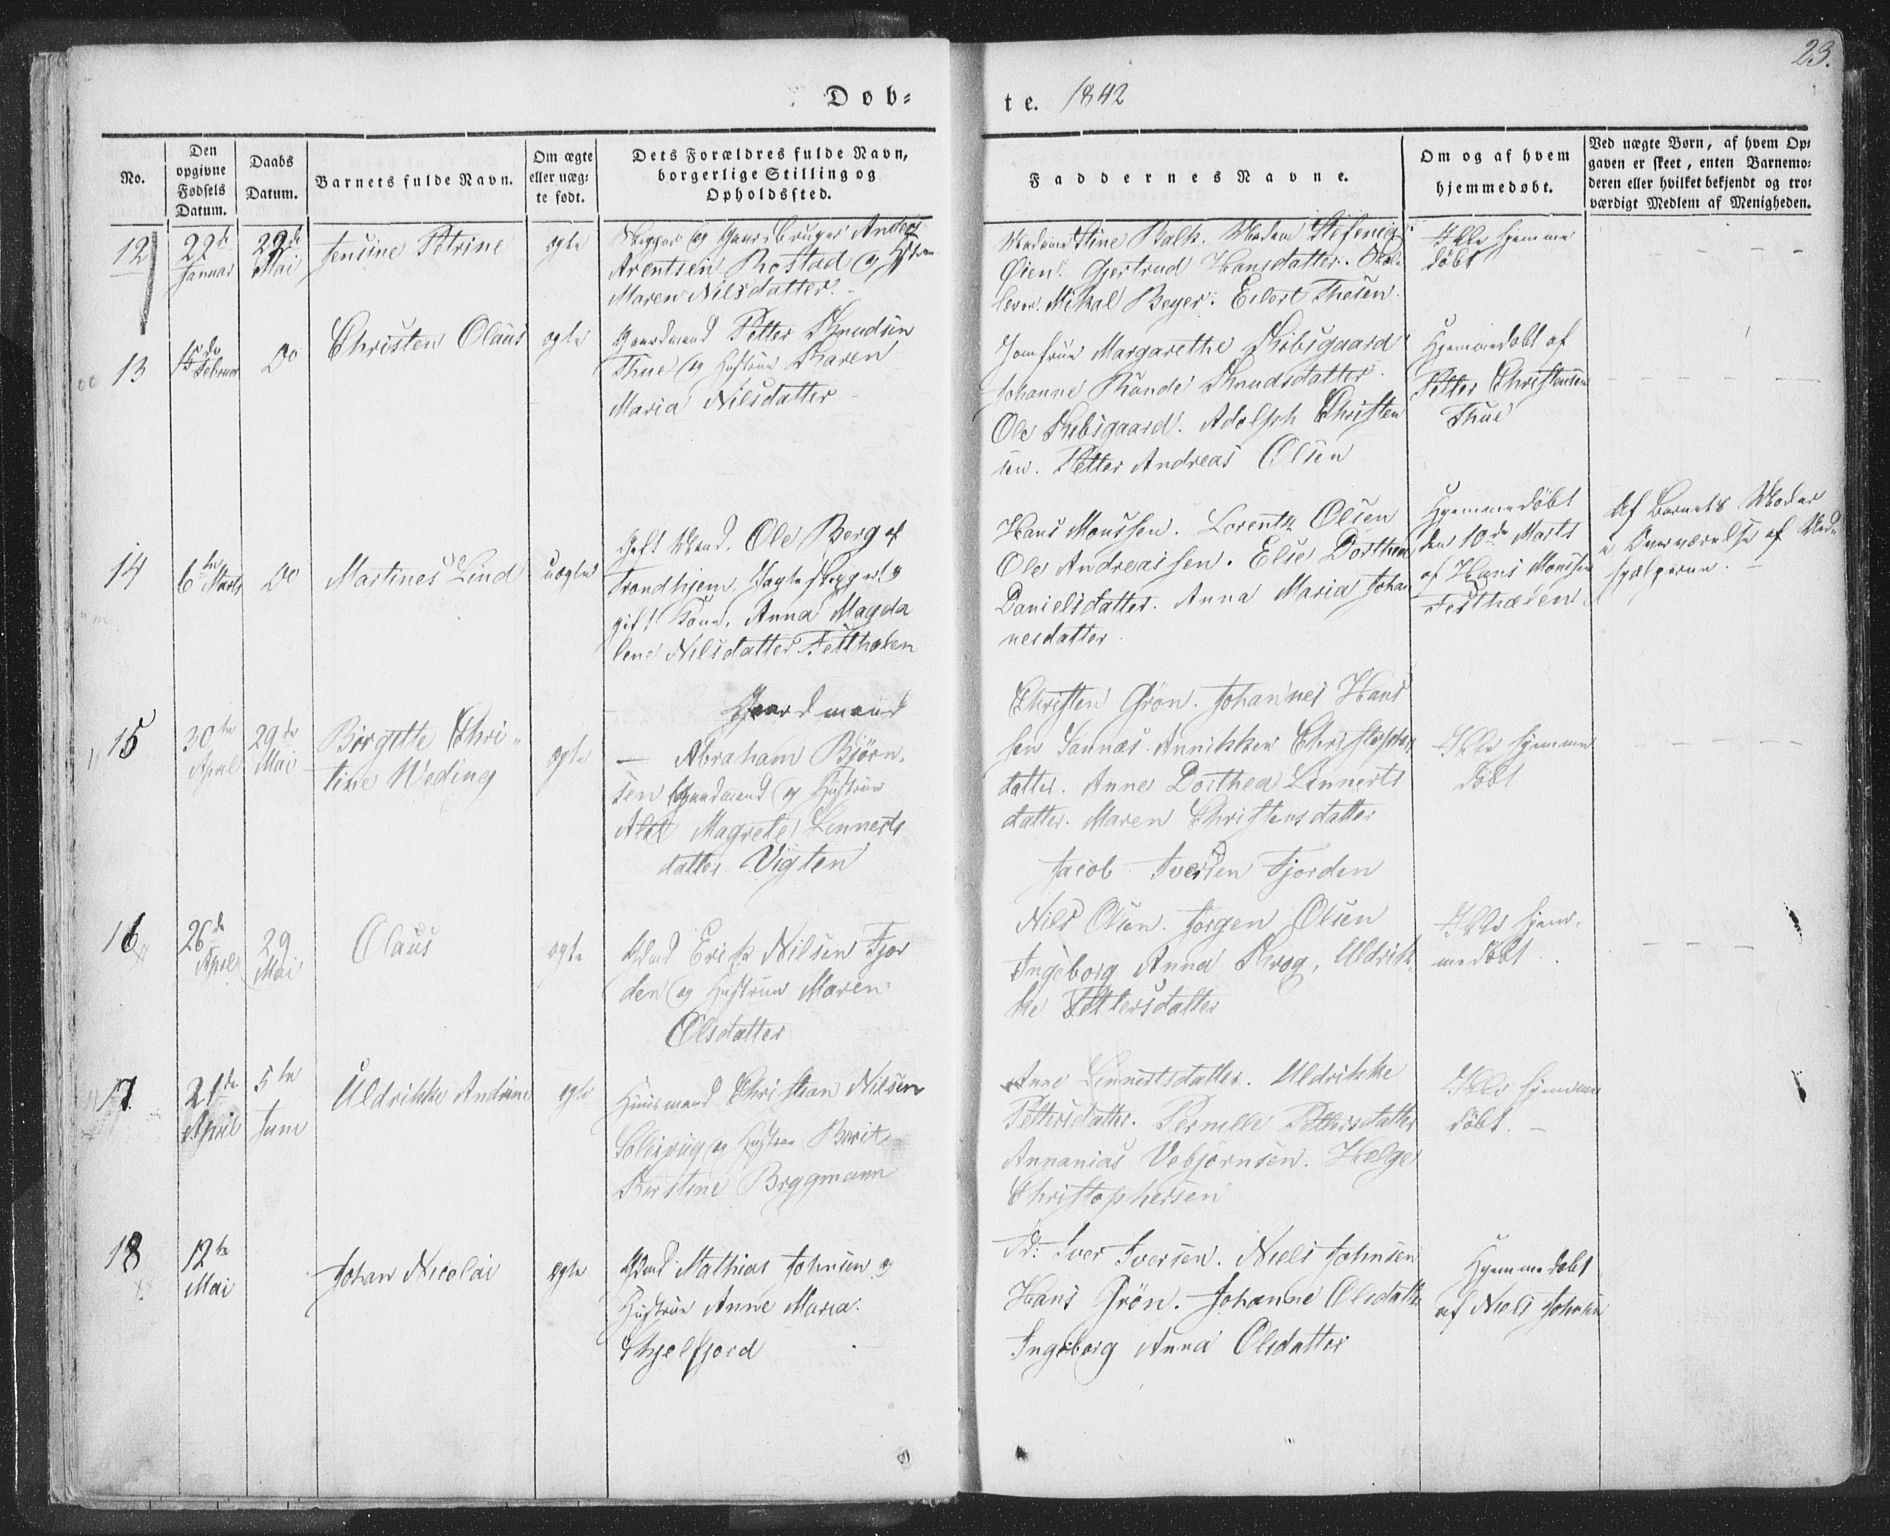 23.
Døb=
te. 1842
No.
Den
opgivne
Fødsels
Datum.
Daabs
Datum.
Barnets fulde Navn.
Om ægte
eller uæg=
te født.
Dets Forældres fulde Navn,
borgerlige Stilling og
Opholdssted.
Faddernes Navne.
Om og af hvem
hjemmedøbt.
Ved uægte Børn, af hvem Op=
gaven er skeet, enten Barnemo=
deren eller hvilket bekjendt og tro=
værdigt Medlem af Menigheden.
12
22de
Januar
22de
Mai
Jensine Petrine
egte
Skipper og Gaardbruger Anders
Arentsen Rostad og Hustru
Maren Nilsdatter.
Madame Stine Balk. Madam
Øien. Gjertrud Hansdatter.
Mikal Beyer. Eilert Thesen.
Ikke hjemme
døbt
13
15de
Februar
Do
Christen Olaus
egte
Gaardmand Petter Knudsen
Thue og Hustrue Karen
Maria Nilsdatter
Jomfrue Margarethe Kibsgaard
Johanne Knudsdatter.
Ole Kibsgaard. Adolph Christen
sen. Petter Andreas Olsen
Hjemmedøbt af
Petter Christensen
Thue
14
6te Marts
Do
Martines Lind
uegte
Gift Mand, Ole Berg af
Trondhjem, Jagteskipper. U
gift Kone, Anna Magda
lene Nilsdatter Festhælen
Hans Monssen. Lorentz Olsen
Ole Andreassen. Else Dorthea
Danielsdatter. Anna Maria Johan
nesdatter.
Hjemmedøbt
den 10de Marts
af Hans Monssen
Festhælen
Af Barnets Moder
i Overværelse af Med
hjælperne.
15
30te
April
29de
Mai
Birgitte Chri=
tine Weding
egte
Gaardmand
— Abraham Bjørn.
sen Gaardmand og Hustrue
Magrete Lennerts
datter Vigten
Christen Grøn. Johannes Hans
sen Sannæs. Annikken Christophers
datter. Anne Dorthea Linnerts
datter. Maren Christensdatter
Ikke hjemme
døbt
16
26de
April
29
Mai
Olaus
egte
Gmd Erik Nilsen Fjor
den og Hustrue Maren
Olsdatter
Jacob Iversen Fjorden
Nils Olsen. Jørgen Olsen
Ingeborg Anna Krog, Uldrik
ke Pettersdatter
Ikke hjem.
medøbt.
17
21de
April
5te
Juni
Uldrikke Andrine
egte
Huusmand Christian Nilsen
og Hustrue Berit
Kirstine Bryggmann
Anne Linnertsdatter. Uldrikke
Pettersdatter. Pernille Pettersdatter
Annanias Vebjørnsen. Helge
Christophersen
Ikke hjemme
døbt. —
18
12te
Mai
Johan Nicolai
egte
Gmd Mathias Johnsen og
Hustrue Anne Maria.
Skjelfjord
Fd: Iver Iversen. Niels Johnsen
Hans Grøn. Johanne Olsdatter
Ingeborg Anna Olsdatter
Hjemmedøbt
af Niels Johnsen